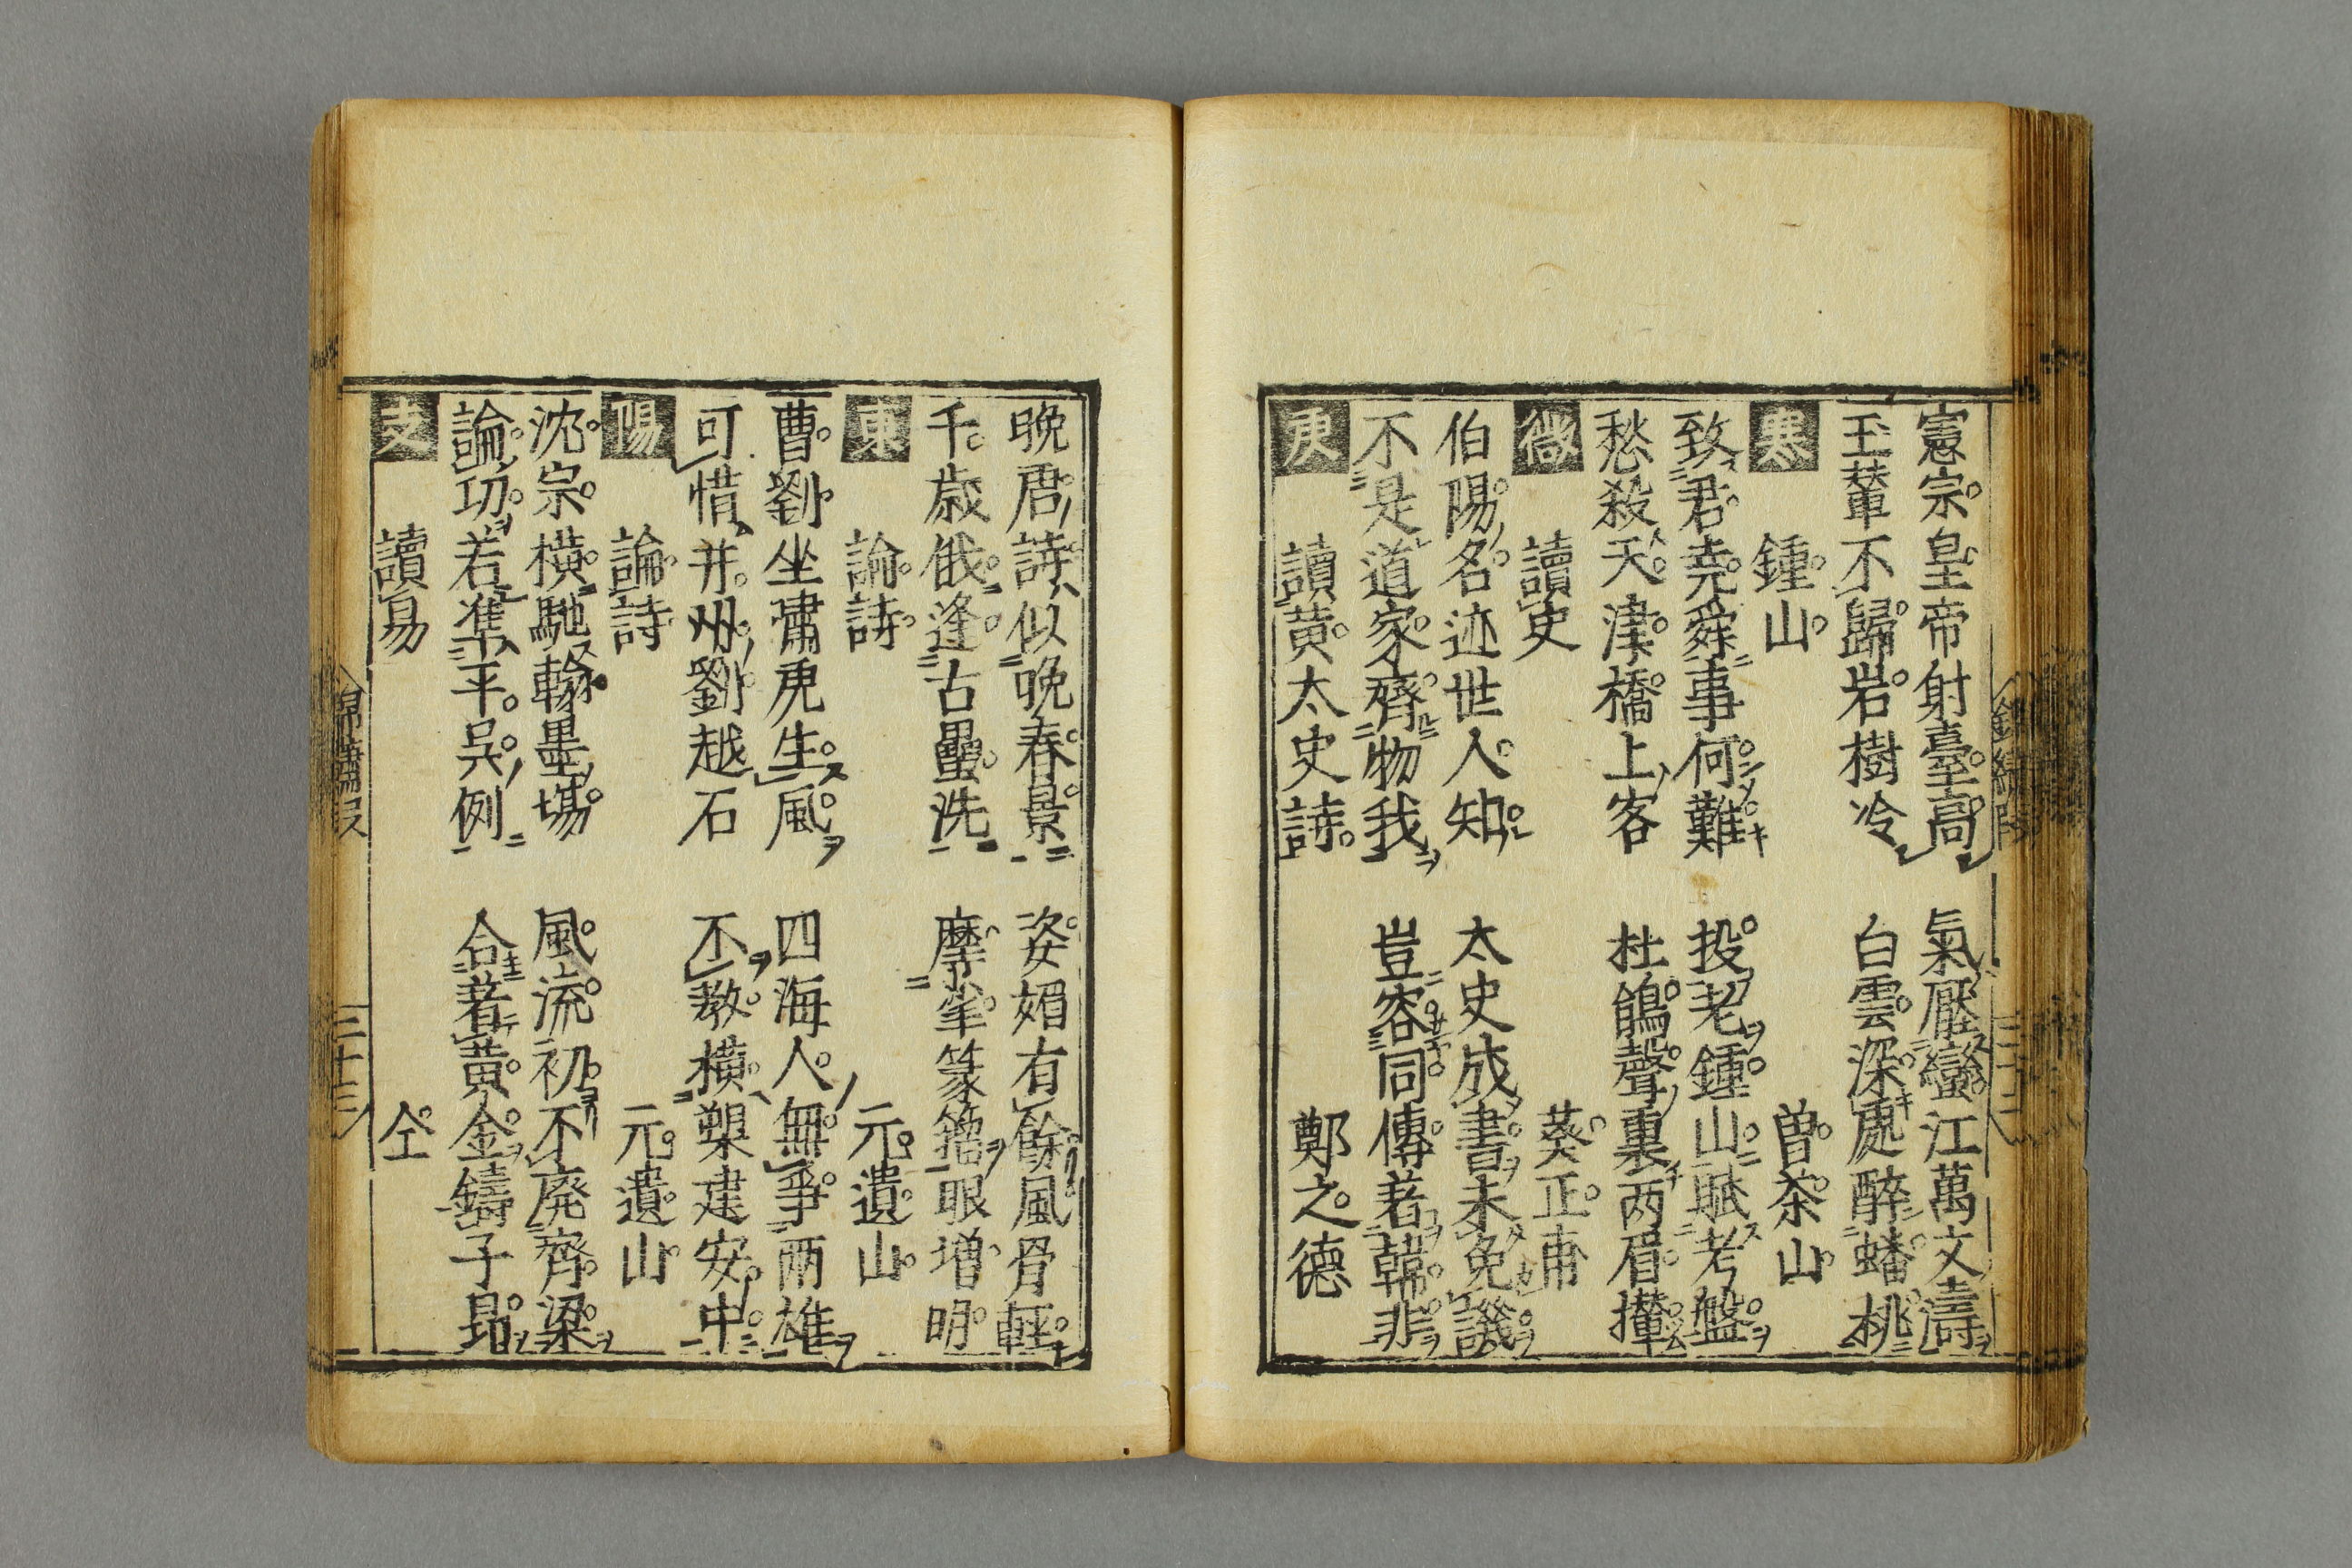 憲宗皇帝射臺高 氣壓蠻江萬文濤
玉輦不歸岩樹冷 白雲深處醉蟠桃
寒 鍾山 曽茶山
致君堯舜事何難 投老鍾山賦考盤
愁殺天津橋上客 杜鵑聲裏两眉攢
微 讀史 葵正甫
伯陽名迹世人知 太史成書未免譏
不是道家齊物我 豈容同傳著韓非
庚 讀黄太史詩 鄭之德
晩君詩似晩春景 姿媚有餘風骨輕
千歳俄逢古罍洗 摩挲篆籀眼増明
東 論詩 元遺山
曹劉坐嘯虎生風 四海人無爭兩雄
可惜并州劉越石 不教横槊建安中
陽 論詩 元遺山
沈宗横馳翰墨場 風流初不廃齊梁
論功若準平吳例 合著黄金鑄子昂
支 讀易 仝
三十三